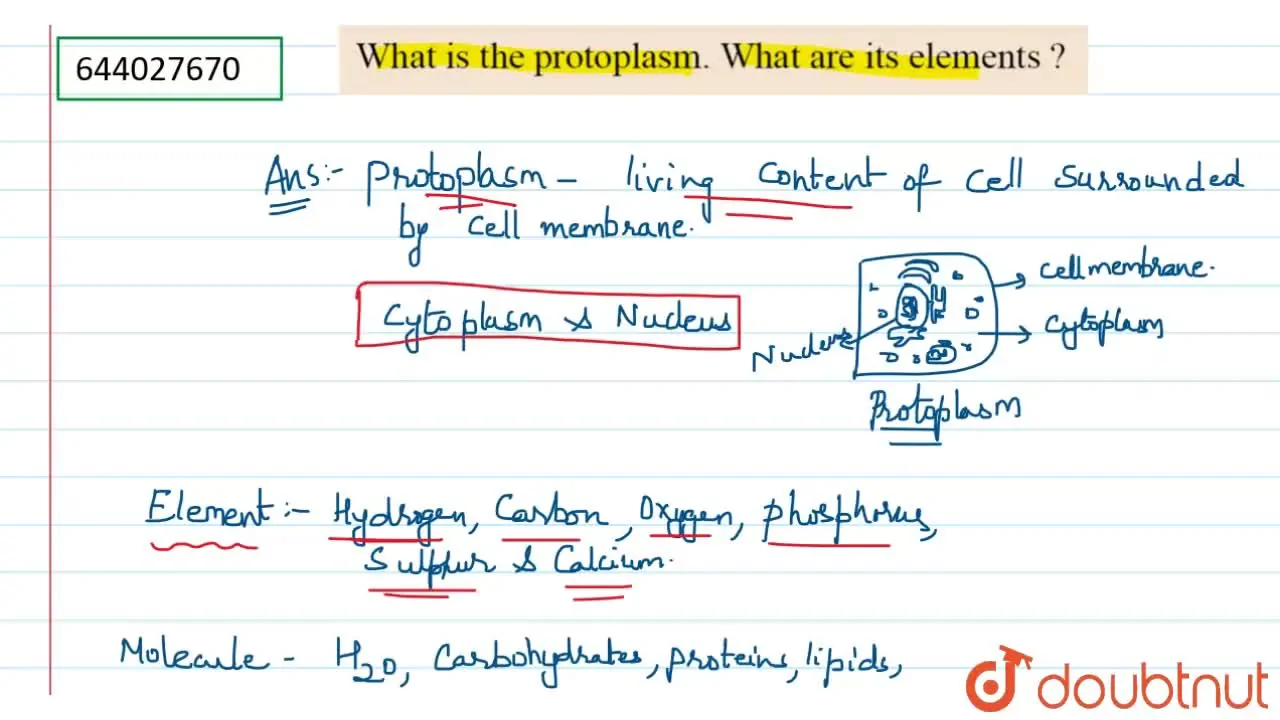 644027670
What is the protoplasm. What are its elements ?
Ans:- Protoplasm - living content of cell surrounded
by cell membrane.
Cytoplasm & Nucleus
cell membrane.
Cytoplasm
Nucleus
Protoplasm
Element :- Hydrogen, Carbon, Oxygen, phosphorus,
Sulphur & Calcium.
Molecule - H2O, Carbohydrates, proteins, lipids,
doubtnut